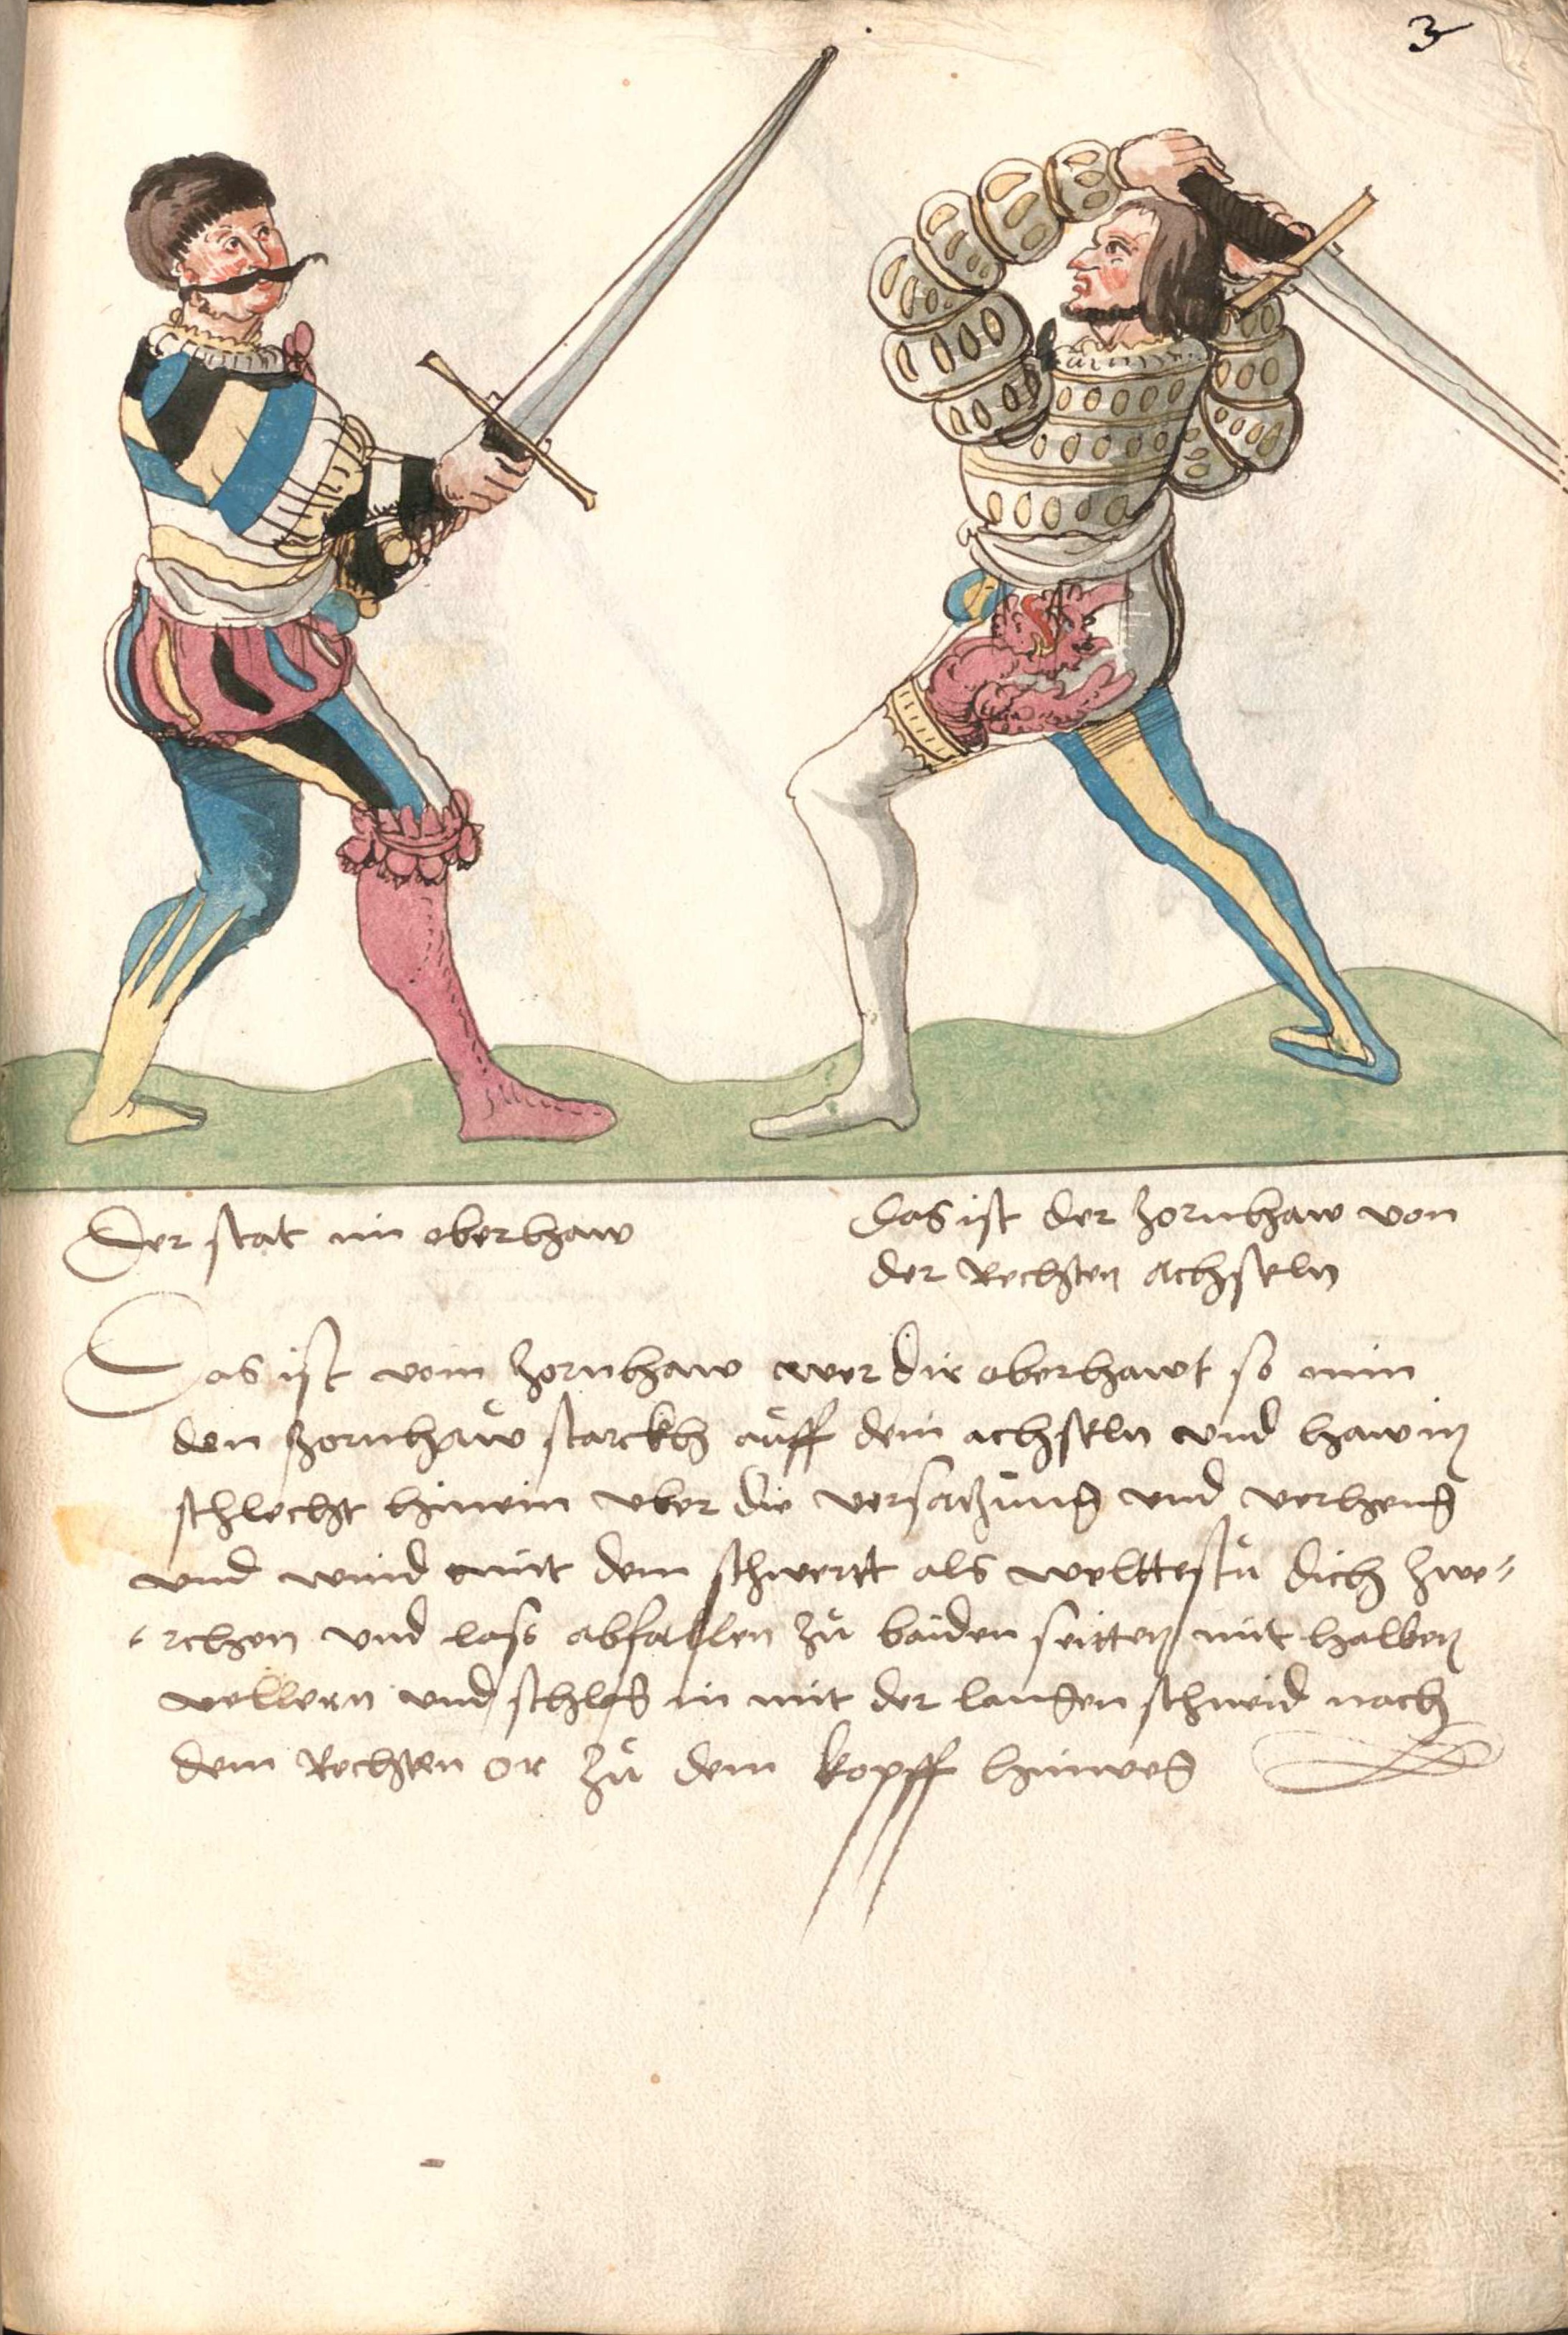 3
Der stat im oberhaw
Das ist der zornhaw von
der Rechsten achseln
Das ist vom zornhaw wer dir oberhawt so nim
den zornhaw starckh auff dein achseln vnd haw im
schlecht hinein vber die versatzung vnd verheng
vnd wind mit dem schwertt als welttestu dich zwe⸗
⸗rchen vnd lass abfallen zu baiden seitten mit halben
vellern vnd schlag in mit der langen schneid nach
dem Rechsten or zu dem kopff hinweg